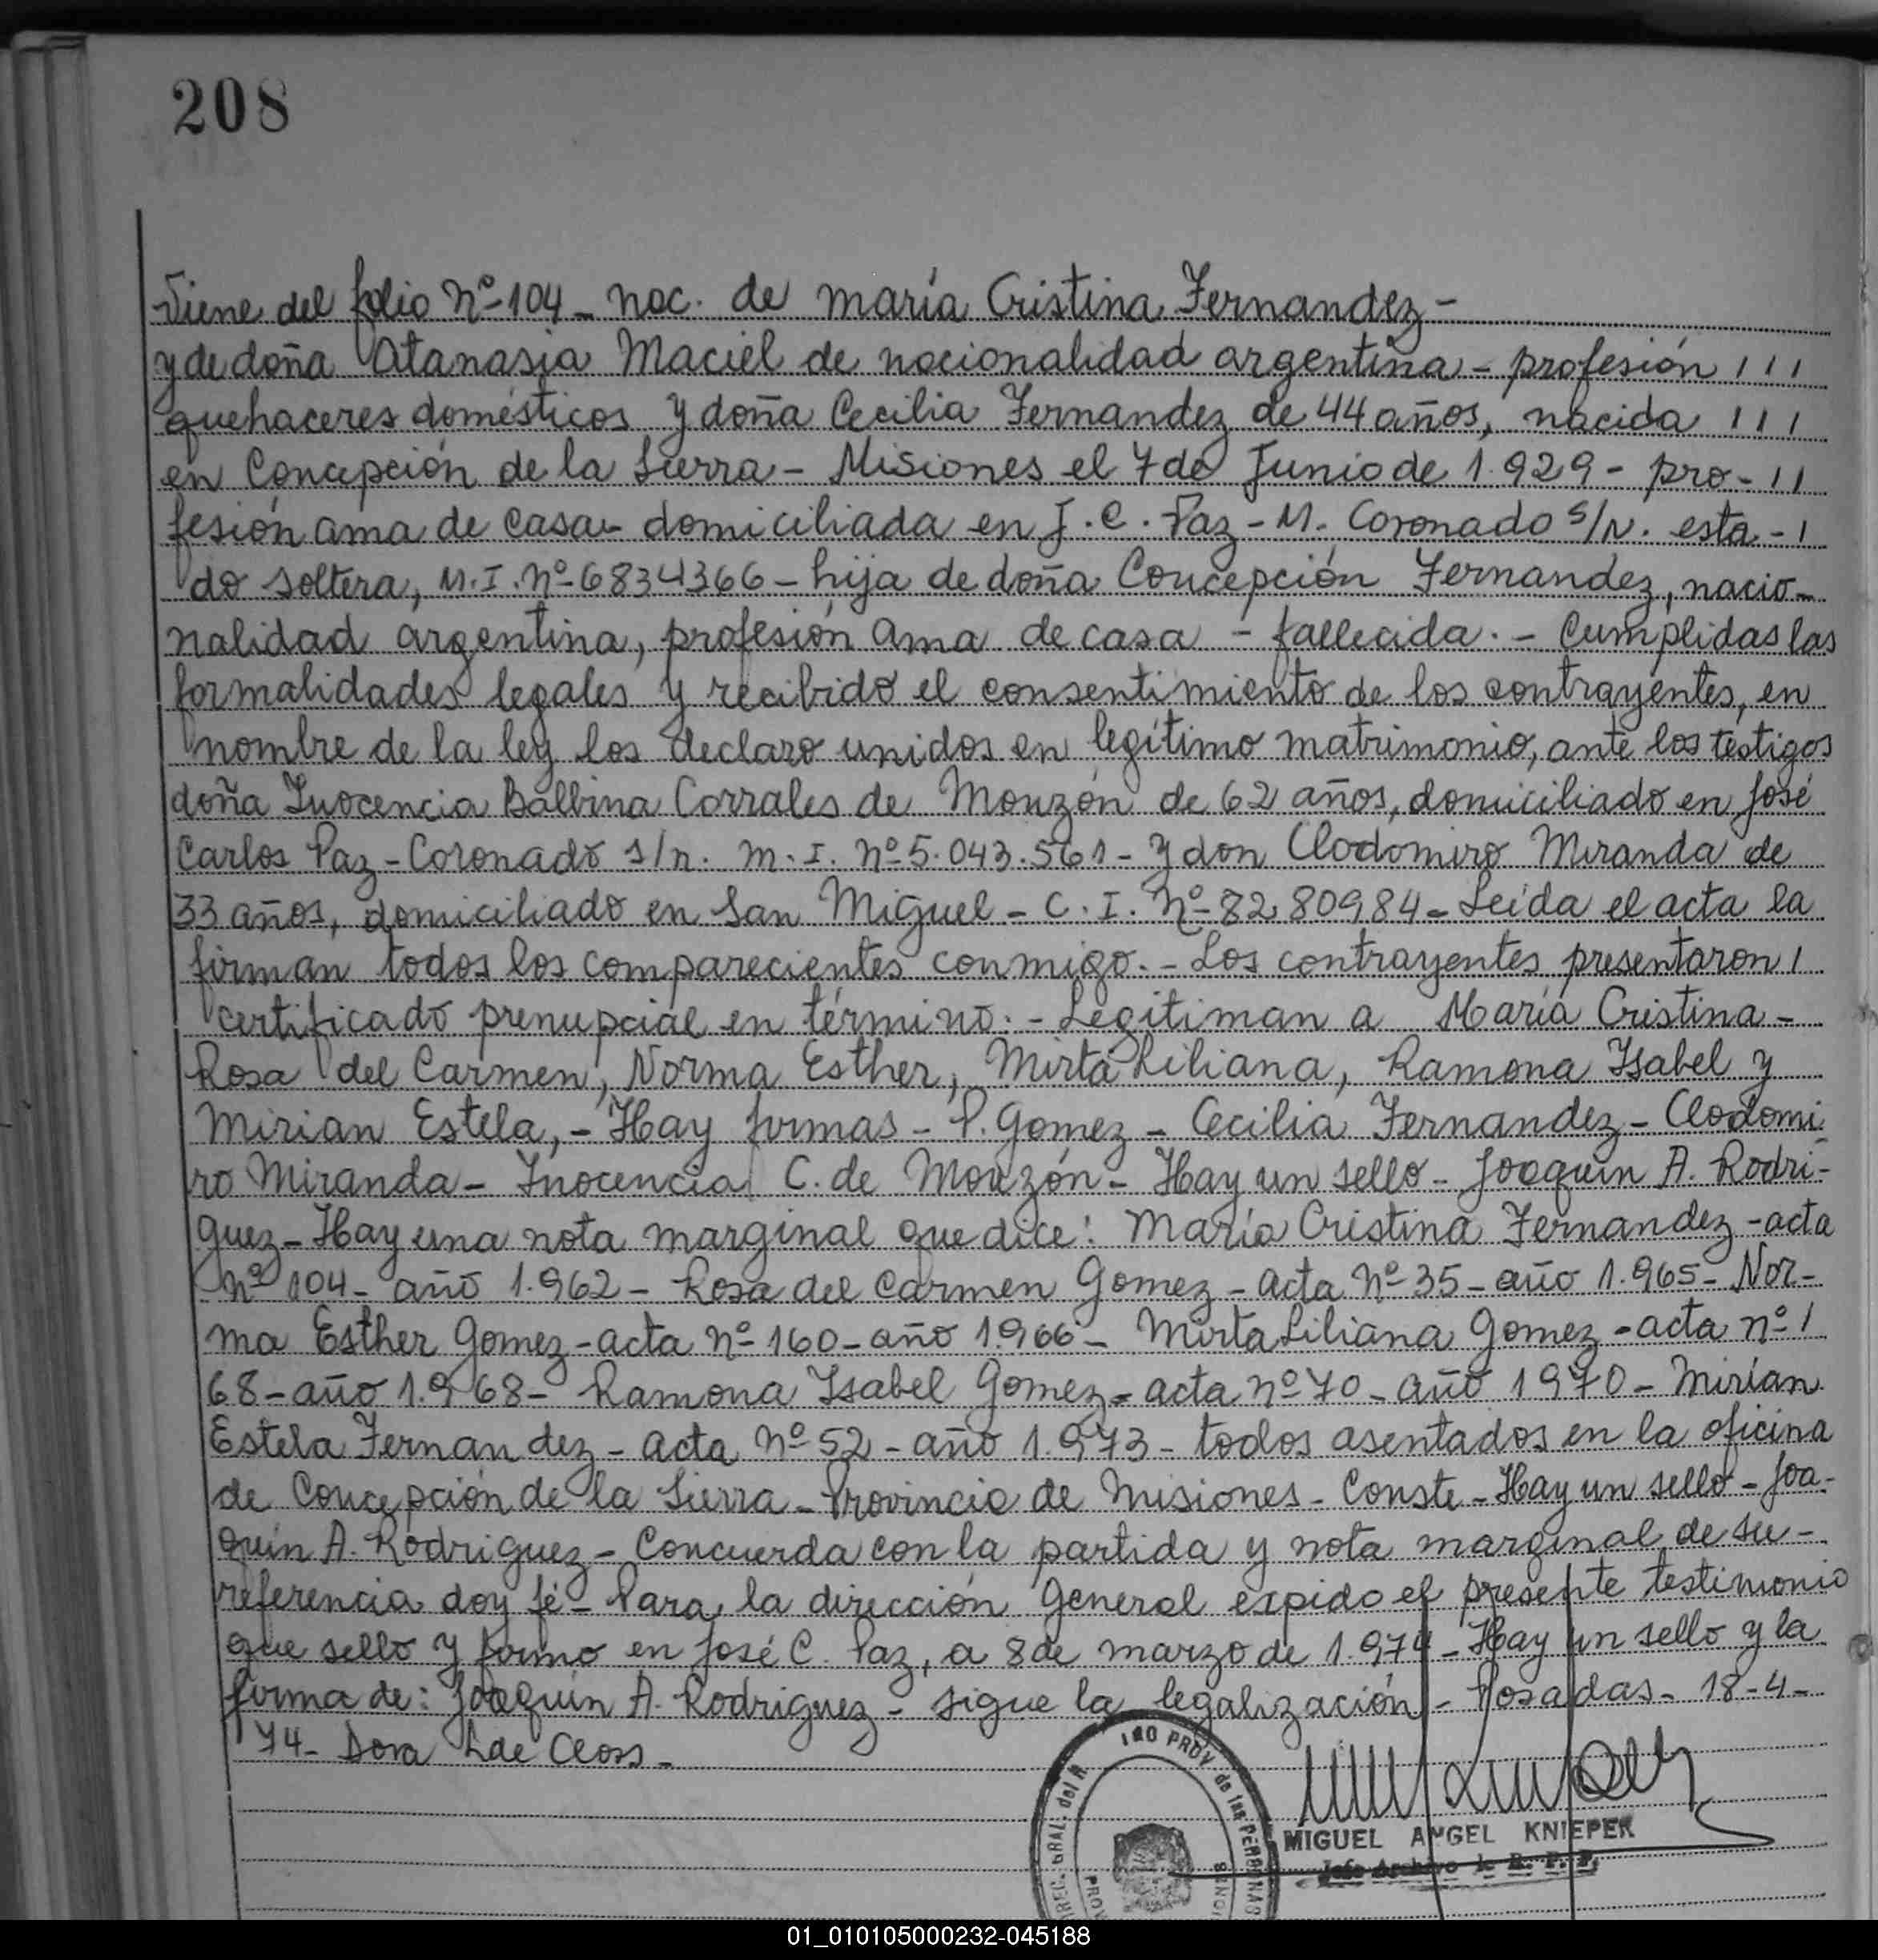 208
Viene del folio Nº 104 - nac. de María Cristina Fernandez -
y de doña Atanasia Maciel de nacionalidad argentina - profesión / / /
quehaceres domésticos y doña Cecilia Fernandez de 44 años, nacida / / /
en Concepción de la Sierra - Misiones el 7 de Junio de 1.929 - pro- / /
fesión ama de casa - domiciliada en J. C. Paz - M. Coronado s/N. esta- /
do soltera, M. I. Nº 6834366 - hija de doña Concepción Fernandez, nacio-
nalidad argentina, profesión ama de casa - fallecida. - Cumplidas las
formalidades legales y recibido el consentimiento de los contrayentes, en
nombre de la ley los declaro unidos en legítimo matrimonio, ante los testigos
doña Inocencia Balbina Corrales de Monzón de 62 años, domiciliado en José
Carlos Paz - Coronado s/n. M. I. Nº 5.043.561 - y don Clodomiro Miranda de
33 años, domiciliado en San Miguel - C. I. Nº 8280984 - Leída el acta la
firman todos los comparecientes conmigo. - Los contrayentes presentaron /
certificado prenupcial en término. - Legitiman a María Cristina -
Rosa del Carmen, Norma Esther, Mirta Liliana, Ramona Isabel y
Mirian Estela, - Hay firmas - P. Gomez - Cecilia Fernandez - Clodomi-
ro Miranda - Inocencia C. de Monzón - Hay un sello - Joaquín A. Rodri-
guez - Hay una nota marginal que dice: María Cristina Fernandez - acta
Nº 104 - año 1.962 - Rosa del Carmen Gomez - Acta Nº 35 - año 1.965 - Nor-
ma Esther Gomez - acta Nº 160 - año 1.966 - Mirta Liliana Gomez - acta nº /
68 - año 1.968 - Ramona Isabel Gomez - acta nº 70 - año 1970 - Mirian
Estela Fernandez - Acta Nº 52 - año 1.973 - todos asentados en la oficina
de Concepción de la Sierra - Provincia de Misiones - Conste - Hay un sello - Joa-
quín A. Rodriguez - Concuerda con la partida y nota marginal de su -
referencia doy fé - Para la dirección General expido el presente testimonio
que sello y firmo en José C. Paz, a 8 de marzo de 1.974 - Hay un sello y la
firma de: Joaquín A. Rodriguez - sigue la legalización - Posadas - 18-4-
74 - Dora L de Closs -
PROV. de las PERSONAS
MIGUEL ANGEL KNIEPER
Jefe Archivo R. P. P.
01_010105000232-045188